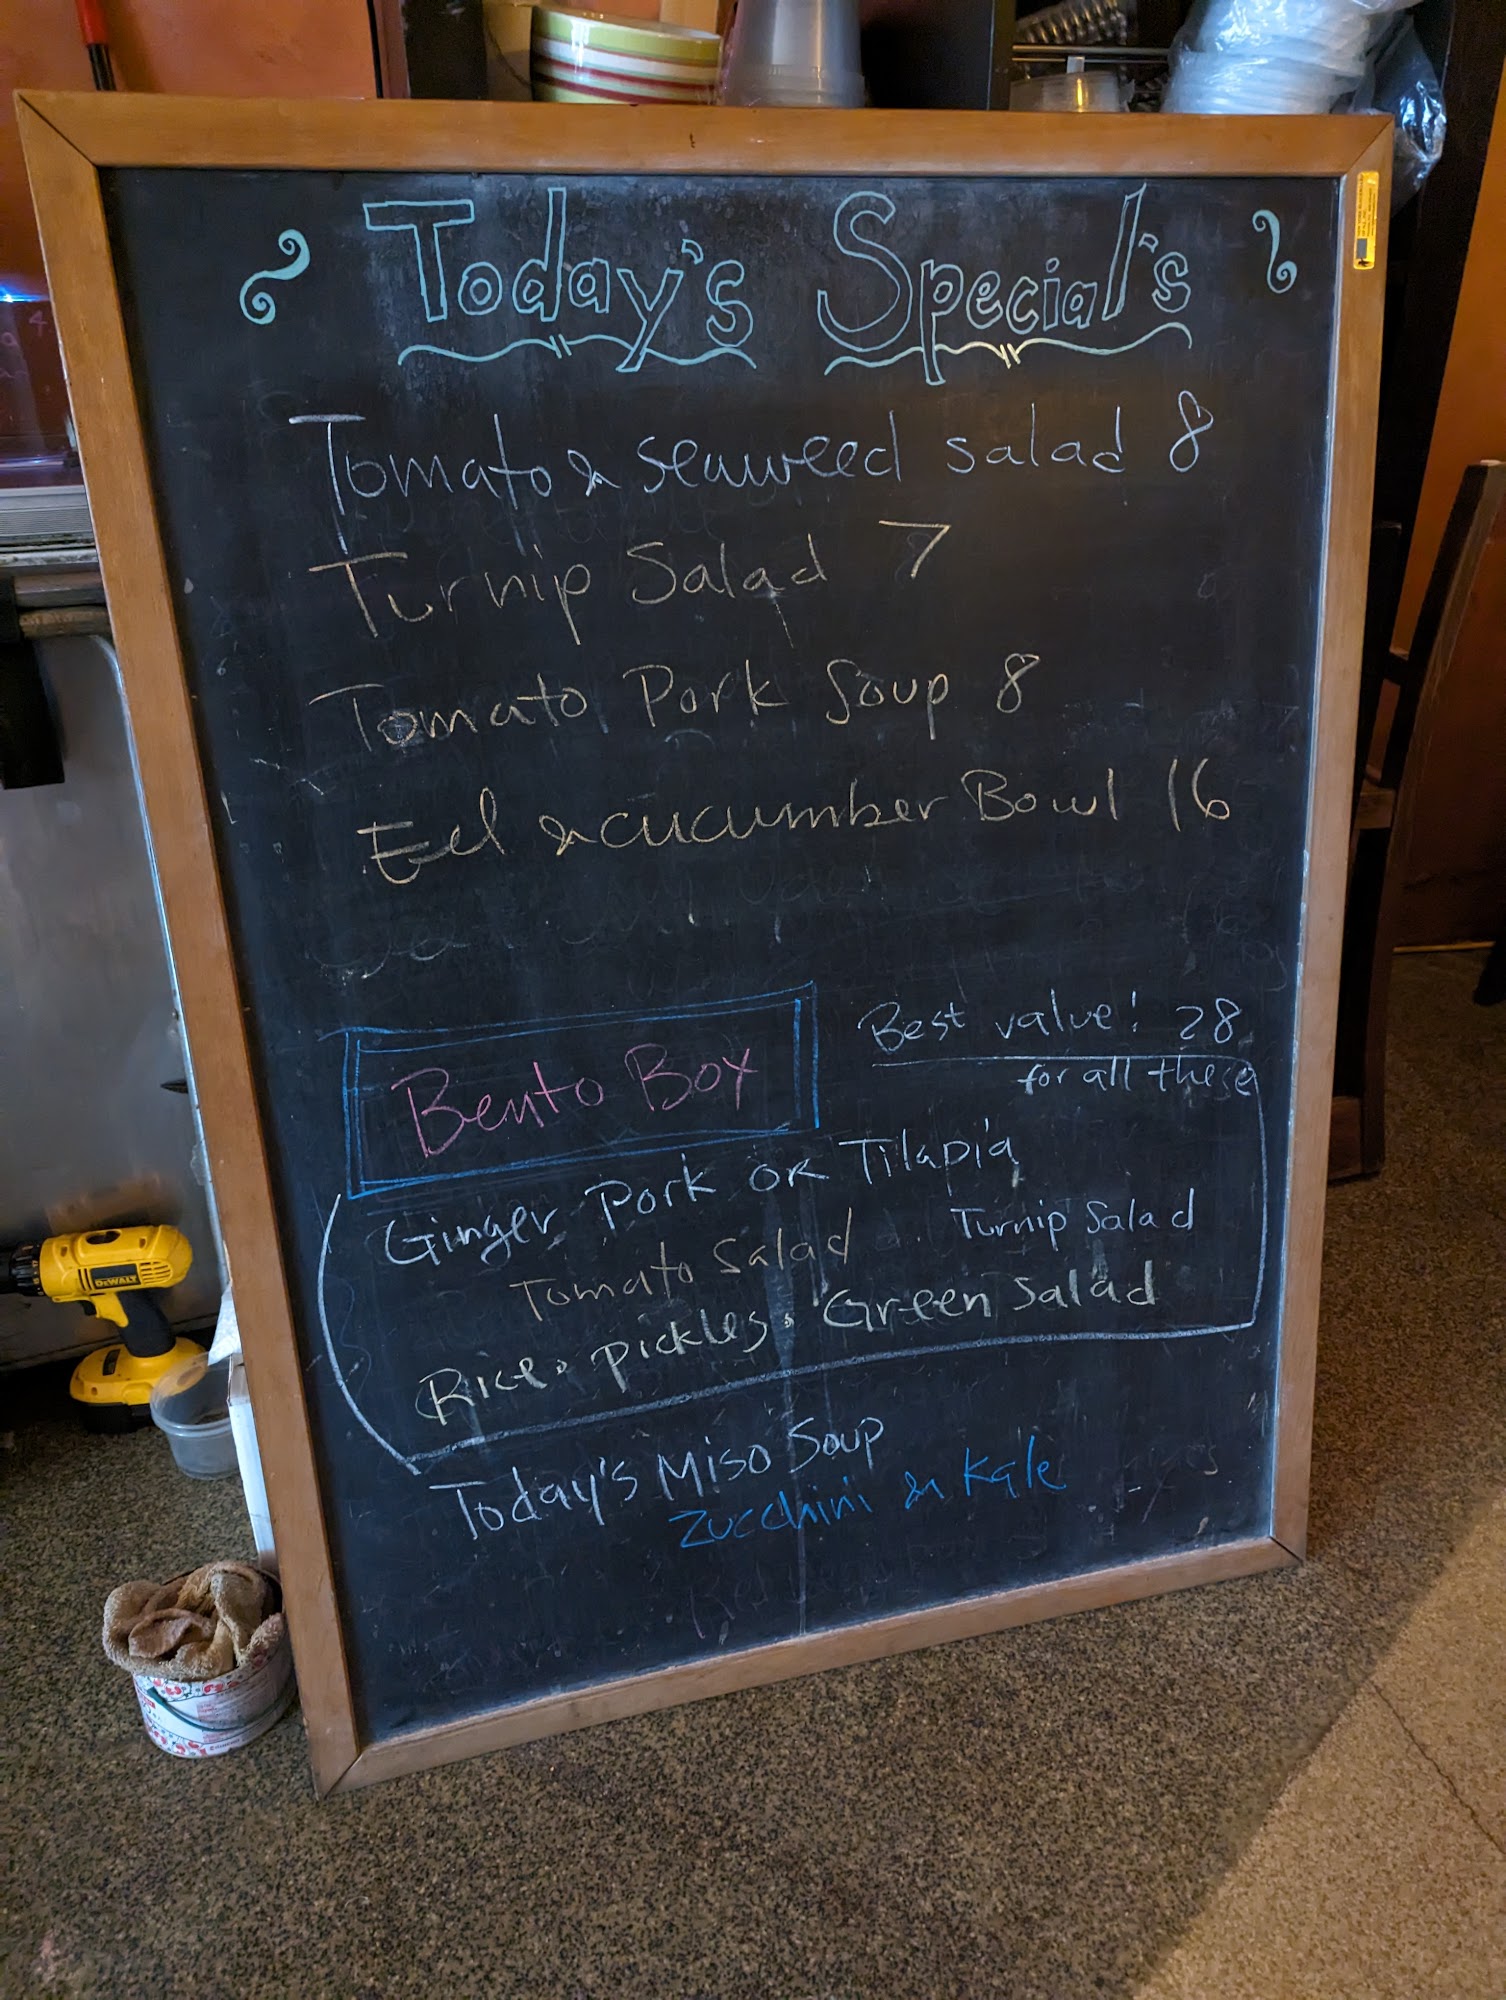 Today's Special's
Tomato & seaweed salad 8
Turnip Salad 7
Tomato Pork Soup 8
Eel & cucumber Bowl 16
Bento Box
Best value! 28
for all these
Ginger Pork or Tilapia
Tomato Salad
Turnip Salad
Rice. pickles. Green Salad
Today's Miso Soup
Zucchini & Kale
DEWALT